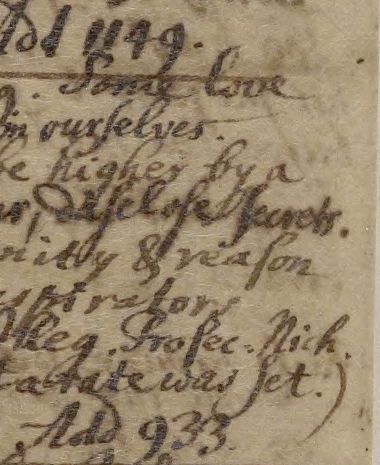 Add 1149.
Some love
in ourselves.
be higher by a
disclose secrets.
nity & reason
spirator
Pheg. Prosec. Rich.
t a rate was set.)
Add 933.